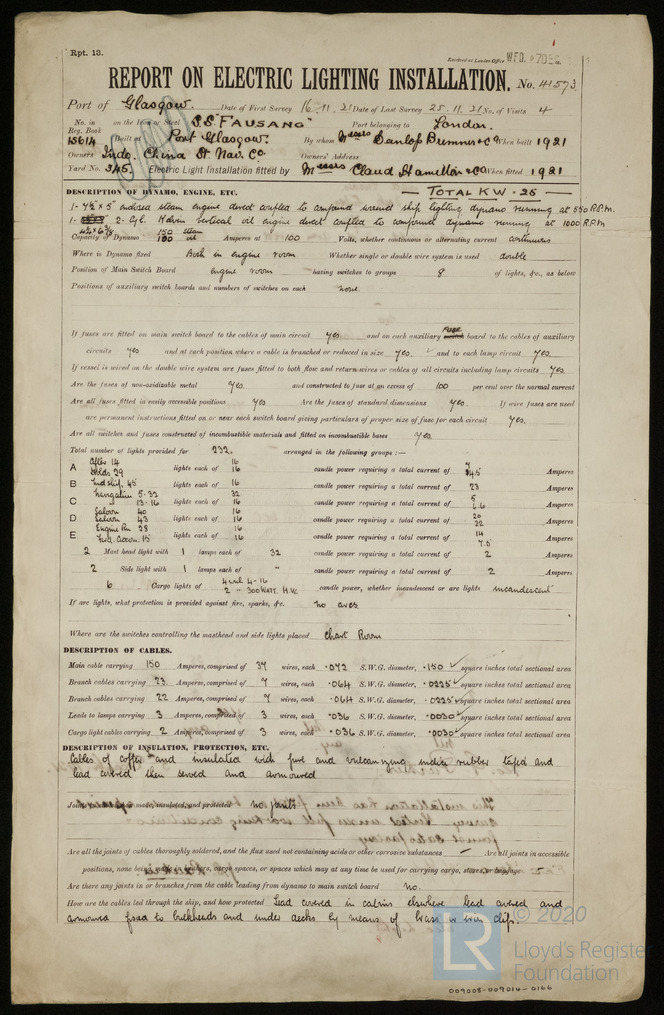 Rpt. 13.
Received at London Office WED. 7 DEC
REPORT ON ELECTRIC LIGHTING INSTALLATION. No. 41573
Port of Glasgow. Date of First Survey 16.11.21 Date of Last Survey 25.11.21 No. of Visits 4
No. in on the Iron or Steel S.S "FAUSANG" Port belonging to London.
Reg. Book
15614 Built at Port Glasgow. By whom Messrs Dunlop Bremner & Co When built 1921
Owners Indo. China St Nav. Co. Owners' Address
Yard No. 345. Electric Light Installation fitted by Messrs Claud Hamilton & Co When fitted 1921
DESCRIPTION OF DYNAMO, ENGINE, ETC. TOTAL KW. 25
1 - 7½ × 5" enclosed steam engine direct coupled to compound wound ship lighting dynamo running at 550 R.P.M.
1. 2. Cyl. Kelvin vertical oil engine direct coupled to compound dynamo running at 1000 R.P.M
4¾ × 6⅜ 150 steam
Capacity of Dynamo 100 oil Amperes at 100 Volts, whether continuous or alternating current continuous
Where is Dynamo fixed Both in engine room Whether single or double wire system is used double
Position of Main Switch Board engine room having switches to groups 8 of lights, &c., as below
Positions of auxiliary switch boards and numbers of switches on each none.
If fuses are fitted on main switch board to the cables of main circuit yes. and on each auxiliary fuse switch board to the cables of auxiliary
circuits yes and at each position where a cable is branched or reduced in size yes. and to each lamp circuit yes.
If vessel is wired on the double wire system are fuses fitted to both flow and return wires or cables of all circuits including lamp circuits yes.
Are the fuses of non-oxidizable metal yes. and constructed to fuse at an excess of 100 per cent over the normal current
Are all fuses fitted in easily accessible positions yes Are the fuses of standard dimensions yes. If wire fuses are used
are permanent instructions fitted on or near each switch board giving particulars of proper size of fuse for each circuit yes.
Are all switches and fuses constructed of incombustible materials and fitted on incombustible bases yes.
Total number of lights provided for 232. arranged in the following groups :—
After 14 16 7
A Holds 29 lights each of 16 candle power requiring a total current of 14.5 Amperes
B Midship. 45 lights each of 16 candle power requiring a total current of 23 Amperes
Navigation 5. 32 32 5
C 13 - 16 lights each of 16 candle power requiring a total current of 6.6 Amperes
Saloon 40 16 20
D Saloon 43 lights each of 16 candle power requiring a total current of 22 Amperes
Engine Rm 28 16 14
E Fwd. Accom. 15 lights each of 16 candle power requiring a total current of 7.5 Amperes
2 Mast head light with 1 lamps each of 32 candle power requiring a total current of 2 Amperes
2 Side light with 1 lamps each of " candle power requiring a total current of 2 Amperes
6 Cargo lights of 4 each 4-16 2 - 300 Watt. H.W. candle power, whether incandescent or arc lights incandescent
If arc lights, what protection is provided against fire, sparks, &c. no arcs
Where are the switches controlling the masthead and side lights placed Chart Room
DESCRIPTION OF CABLES.
Main cable carrying 150 Amperes, comprised of 37 wires, each .072 S.W.G. diameter, .150 square inches total sectional area
Branch cables carrying 23 Amperes, comprised of 7 wires, each .064 S.W.G. diameter, .0225 square inches total sectional area
Branch cables carrying 22 Amperes, comprised of 7 wires, each .064 S.W.G. diameter, .0225 square inches total sectional area
Leads to lamps carrying 3 Amperes, comprised of 3 wires, each .036 S.W.G. diameter, .0030 square inches total sectional area
Cargo light cables carrying 2 Amperes, comprised of 3 wires, each .036 S.W.G. diameter, .0030 square inches total sectional area
DESCRIPTION OF INSULATION, PROTECTION, ETC.
Cables of copper and insulated with pure and vulcanizing india rubber taped and
lead covered then served and armoured
Joints in cables, how made, insulated, and protected no joints
Are all the joints of cables thoroughly soldered, and the flux used not containing acids or other corrosive substances — Are all joints in accessible
positions, none being in bunkers, cargo spaces, or spaces which may at any time be used for carrying cargo, stores, or baggage -
Are there any joints in or branches from the cable leading from dynamo to main switch board no.
How are the cables led through the ship, and how protected Lead covered in cabins elsewhere lead covered and
armoured fixed to bulkheads and under decks by means of brass or iron clips.
© 2020
LR Lloyd's Register
Foundation
009008-009014-0166